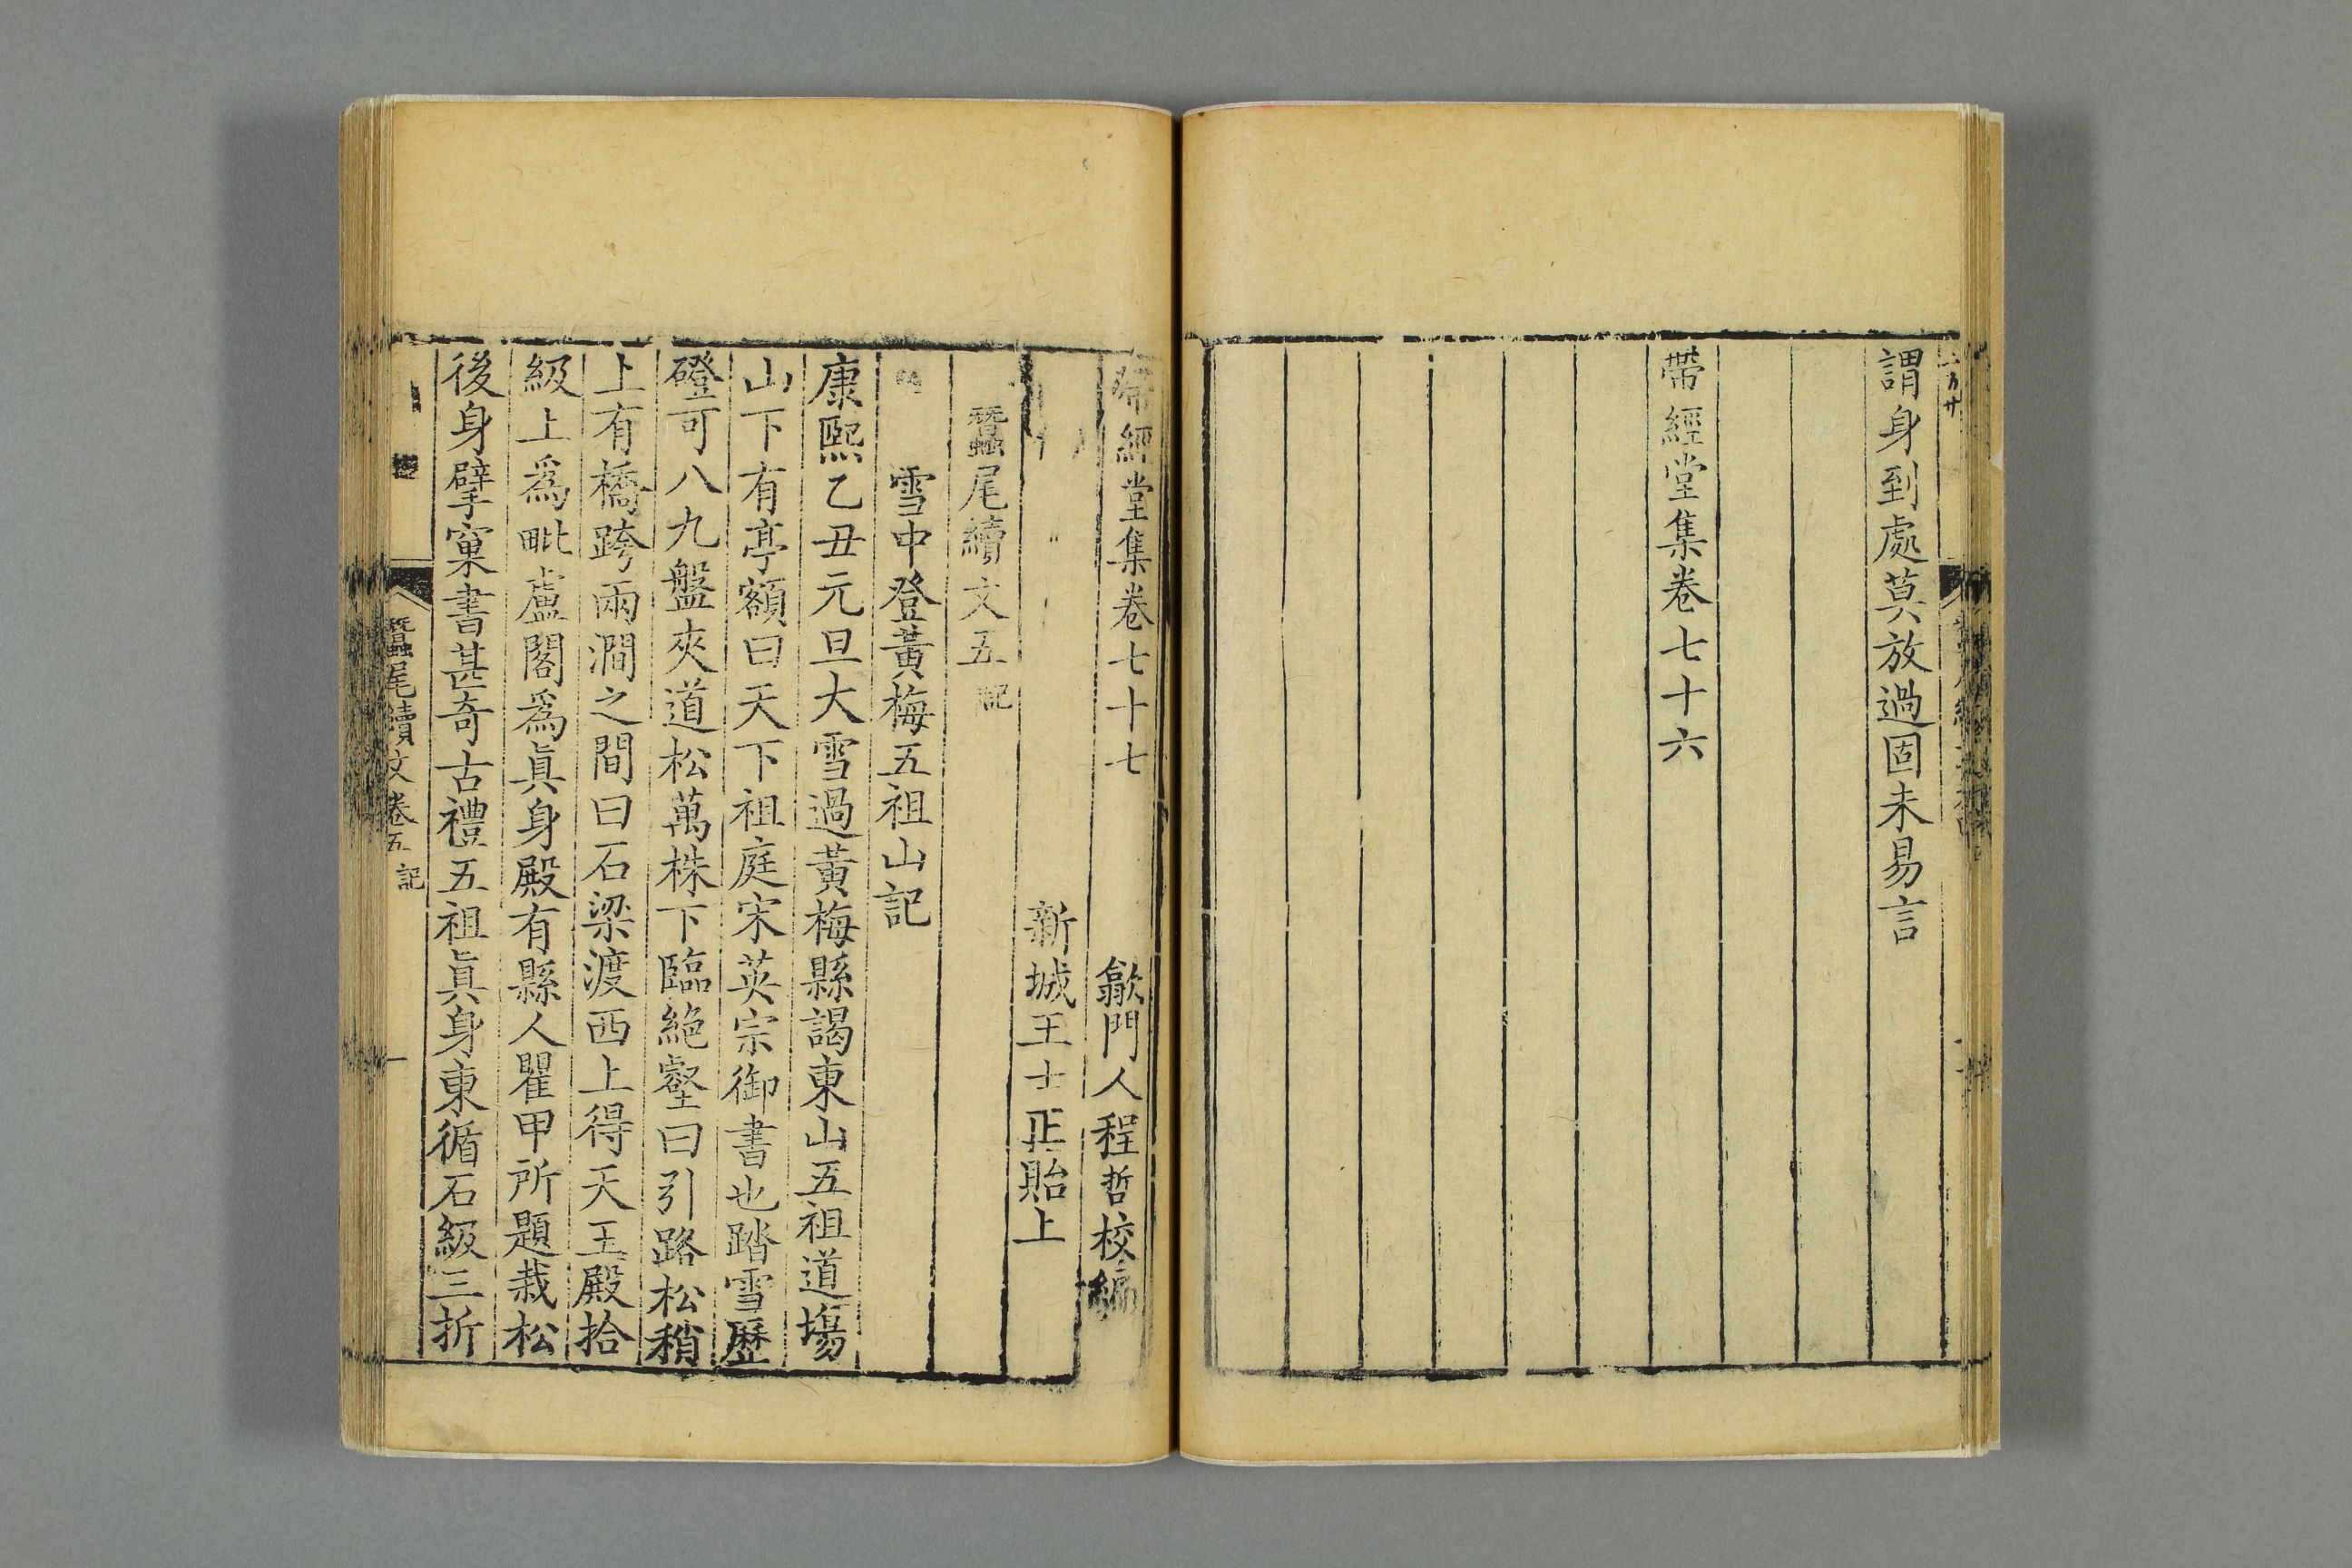 謂身到處莫放過固未易言
帶經堂集卷七十六
帶經堂集卷七十七
歙門人程哲校編
新城王士正貽上
蠶尾續文五 記
雪中登黃梅五祖山記
康熙乙丑元旦大雪過黃梅縣謁東山五祖道塲
山下有亭額曰天下祖庭宋英宗御書也踏雪歷
磴可八九盤夾道松萬株下臨絶壑曰引路松稍
上有橋跨兩澗之間曰石梁渡西上得天王殿拾
級上爲毗盧閣爲眞身殿有縣人瞿甲所題栽松
後身擘窠書甚奇古禮五祖眞身東循石級三折
蠶尾續文卷五 記
一